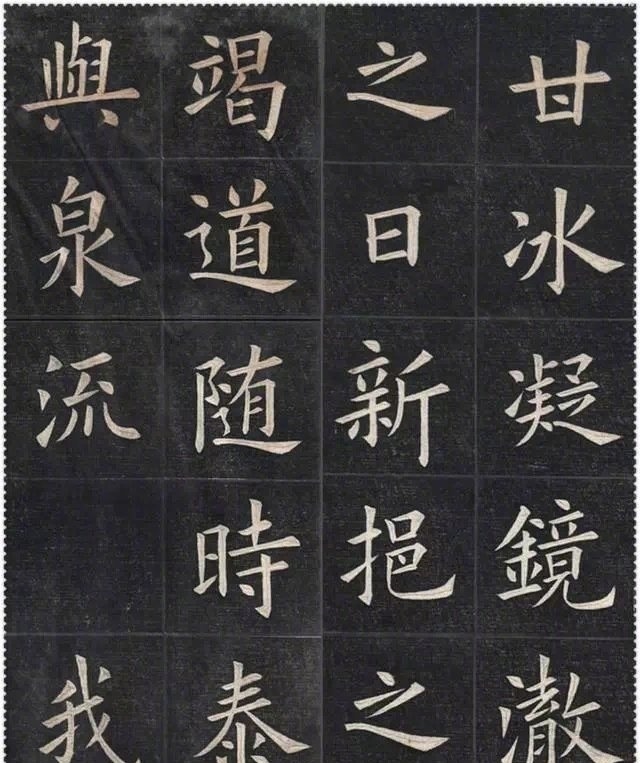 甘冰凝鏡澈
之日新挹之
竭道随時泰
與泉流我